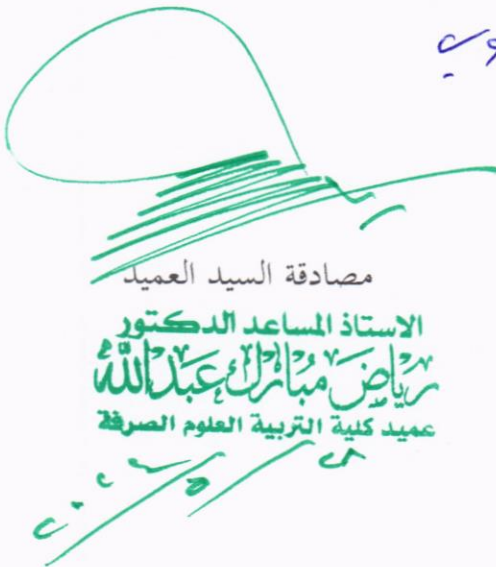 مصادقة السيد العميد
الاستاذ المساعد الدكتور
رياض مبارك عبدالله
عميد كلية التربية العلوم الصرفة